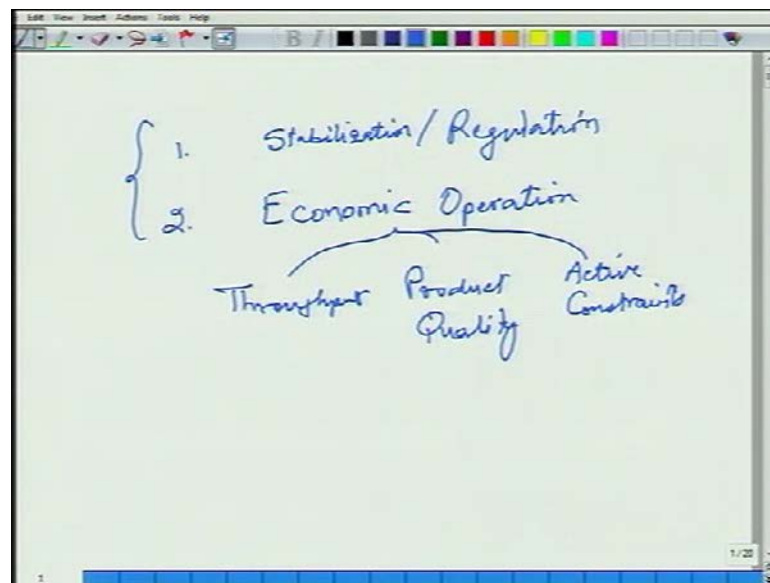 Edit View Insert Actions Tools Help
B I
1. Stabilization / Regulation
2. Economic Operation
Throughput Product Active
Quality Constraints
1/20
1